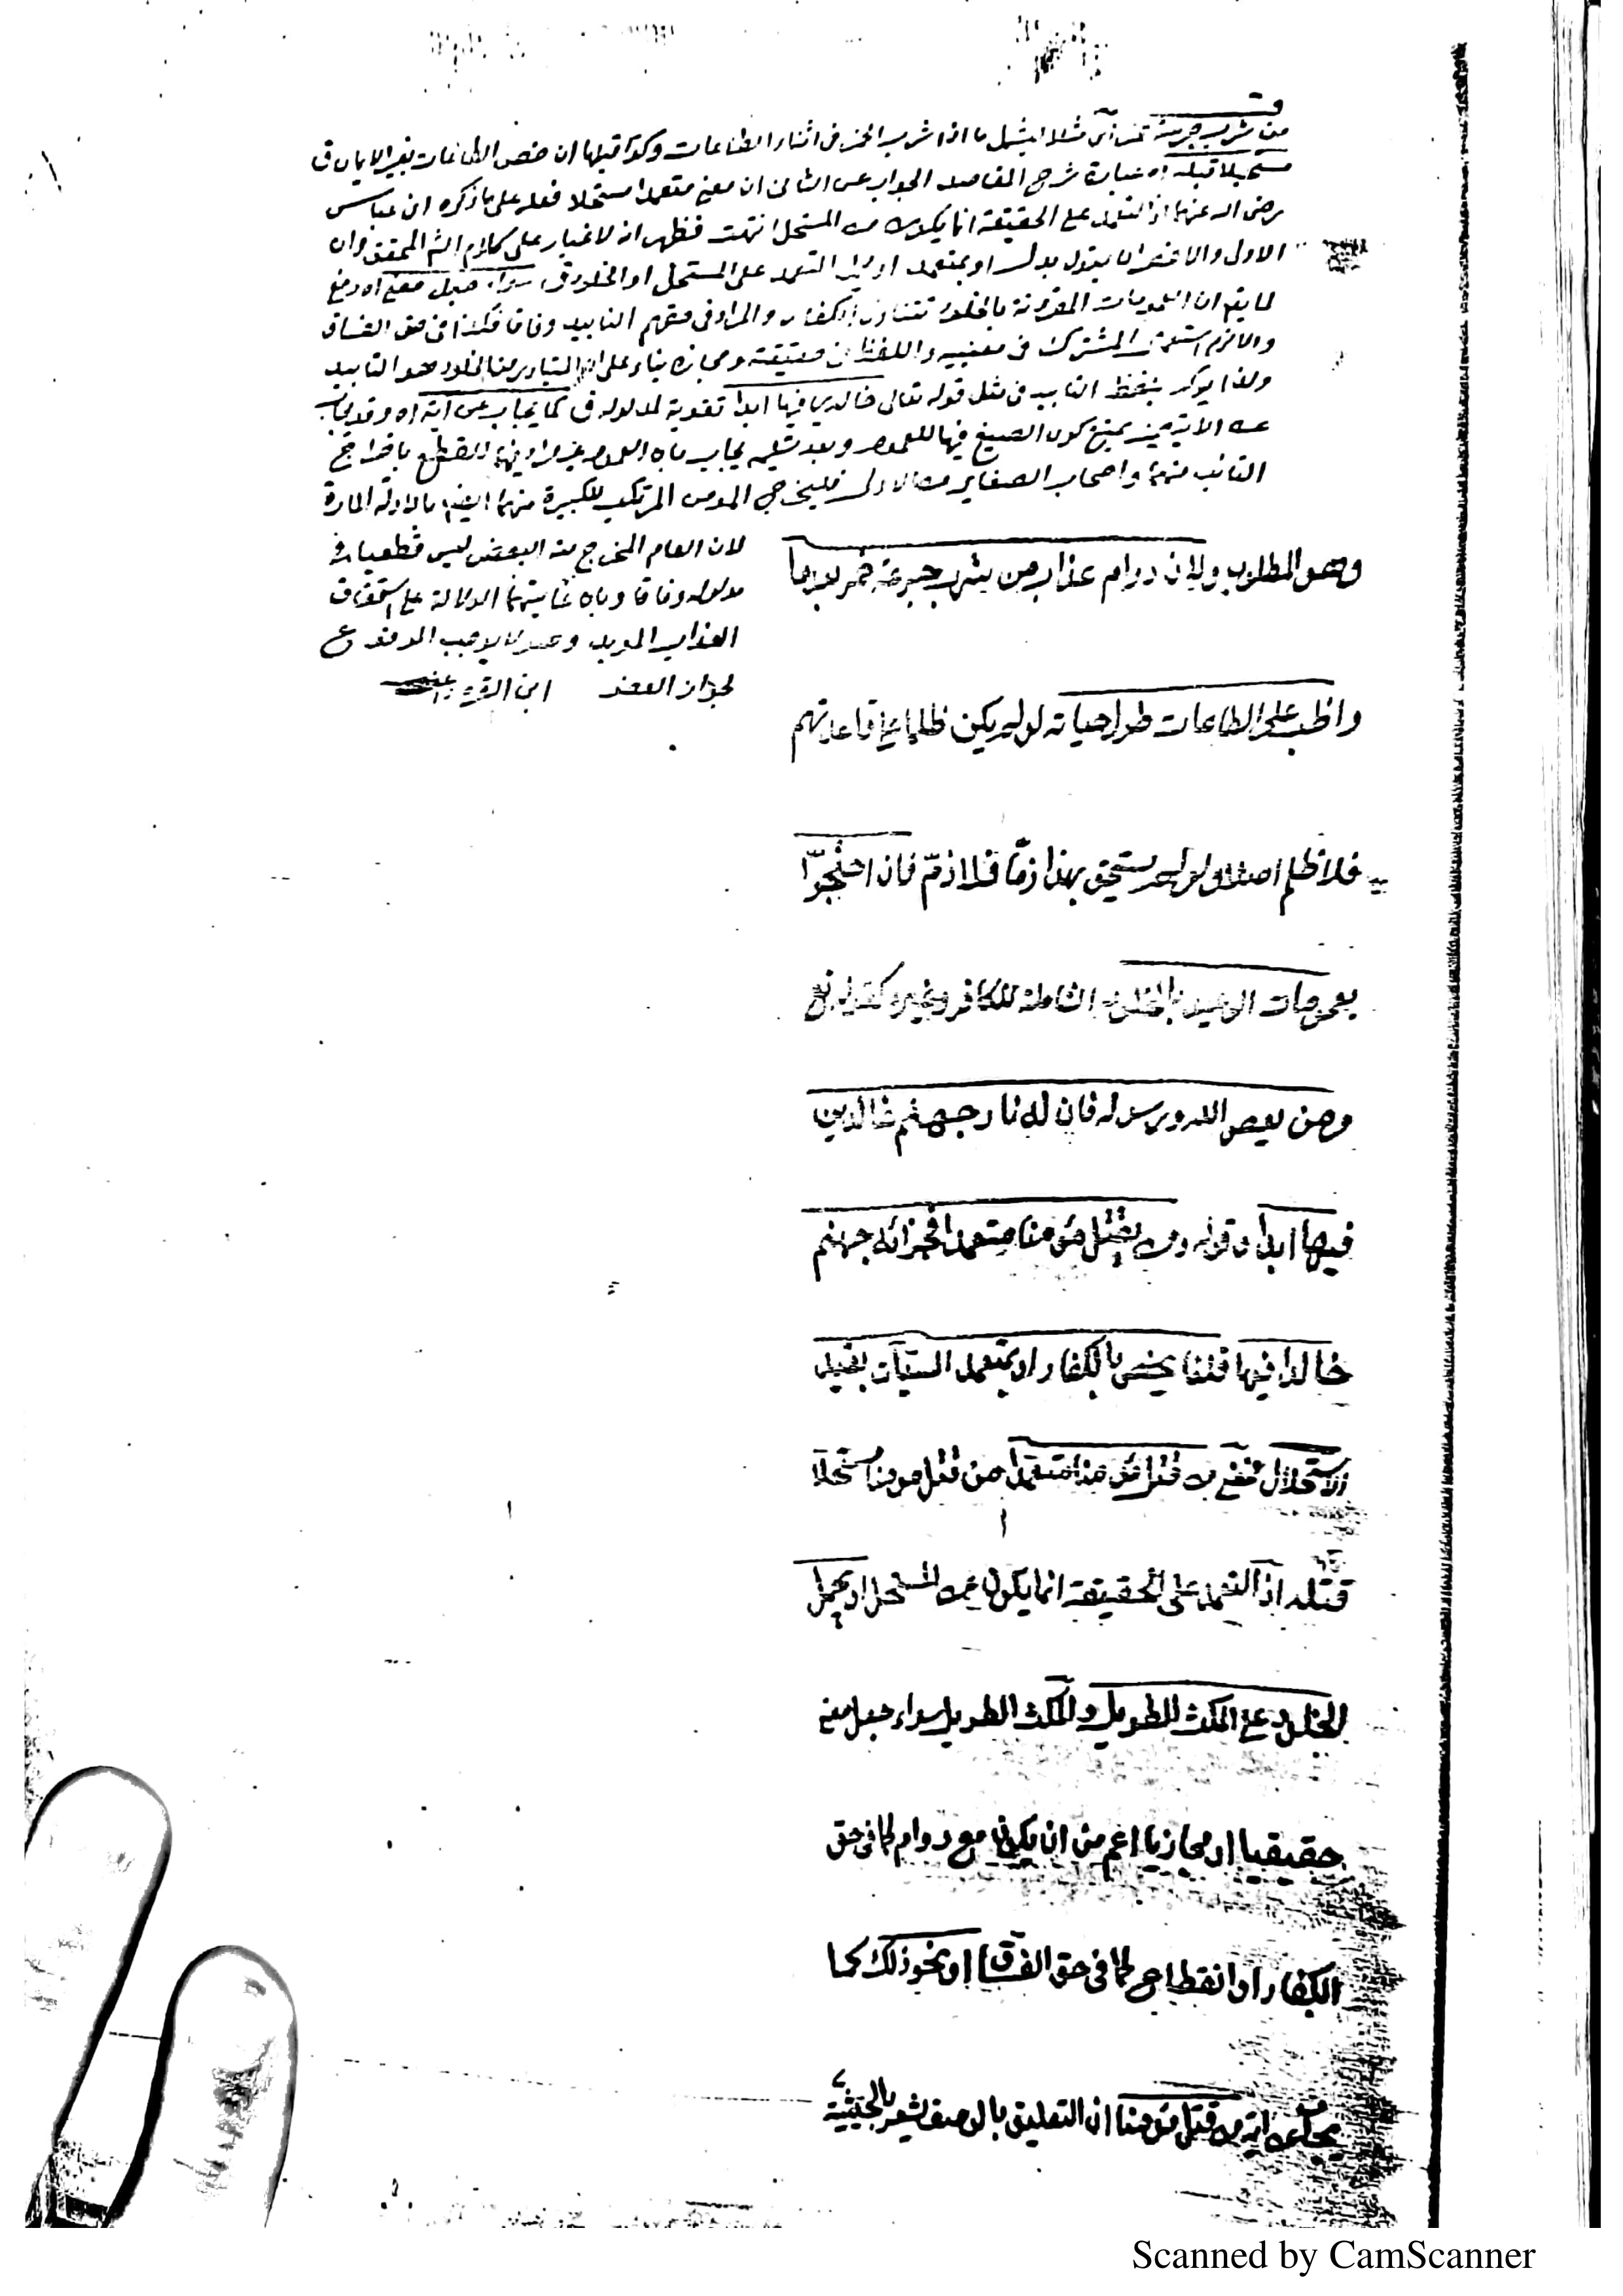 من شرب جرعة خمر آه مثلا ليشمل ما اذا شرب الخمر فى اثناء الطاعات وكذا قبلها ان خص الطاعات بغير الايمان ق
مستحيلا قبله اه عبارة شرح المقاصد الجواب عن الثانى ان معنى متعمدا مستحلا فعله على ما ذكره ابن عباس
رضى الله عنهما اذ التعمد على الحقيقة انما يكون من المستحل انتهت فظهر انه لا غبار على كلام الش المحقق وان
الاولى والاخصر ان يقول بدل او بمتعمد او يحمل التعمد على المستحل او الخلود ق سواء جعل معنى اه دفع
لما يق ان العمومات المقرونة بالخلود تتناول الكفار والمراد فى حقهم التابيد وفاقا فكذا فى حق الفساق
والا لزم استعمال المشترك فى معنييه واللفظ فى حقيقته ومجازه بناء على ان المتبادر من الخلود هو التابيد
ولذا يوكد بلفظ التابيد فى مثل قوله تعالى خالدين فيها ابدا تقوية لمدلوله ق كما يجاب عن آية اه وقد يجاب
عن الآيتين بمنع كون الصيغ فيها للعموم وبعد تسليمه يجاب بان العموم غير مراد فيهما للقطع باخراج
التائب منهما واصحاب الصغاير من الاولى فليخرج المومن المرتكب للكبيرة منهما ايضا بالادلة المارة
لان العام المخرج منه البعض ليس قطعيا فى
مدلوله وفاقا وبان غايتهما الدلالة على استحقاق
العذاب المويد وهو لا يوجب الوقوع
لجواز العفو ابن القره
وهو المطلوب ولان دوام عذاب من شرب جرعة خمر بعد ما
واظب على الطاعات طول حياته لو لم يكن ظلما على قاعدتهم
فلا ظلم اصلا ولو لم يستحق بهذا ذما فلا ذم فان احتجوا
بعمومات الوعيد بالخلود الشاملة للكافر وغيره كقوله تع
ومن يعص الله ورسوله فان له نار جهنم خالدين
فيها ابدا وقوله ومن يقتل مؤمنا متعمدا فجزائه جهنم
خالدا فيها قلنا يختص بالكفار او بمتعمد السيآت بقيد
الاستحلال فمعنى من قتل مؤمنا متعمدا من قتل مومنا مستحلا
قتله اذ التعمد على الحقيقة انما يكون من المستحل او يحمل
الخلود على المكث الطويل والمكث الطويل سواء جعل معنى
حقيقيا او مجازيا اعم من ان يكون مع دوام كما فى حق
الكفار او انقطاع كما فى حق الفساق او نحو ذلك كما
يجاب عن اية من قتل مؤمنا ان التعليق بالوصف يشعر بالحيثية
Scanned by CamScanner